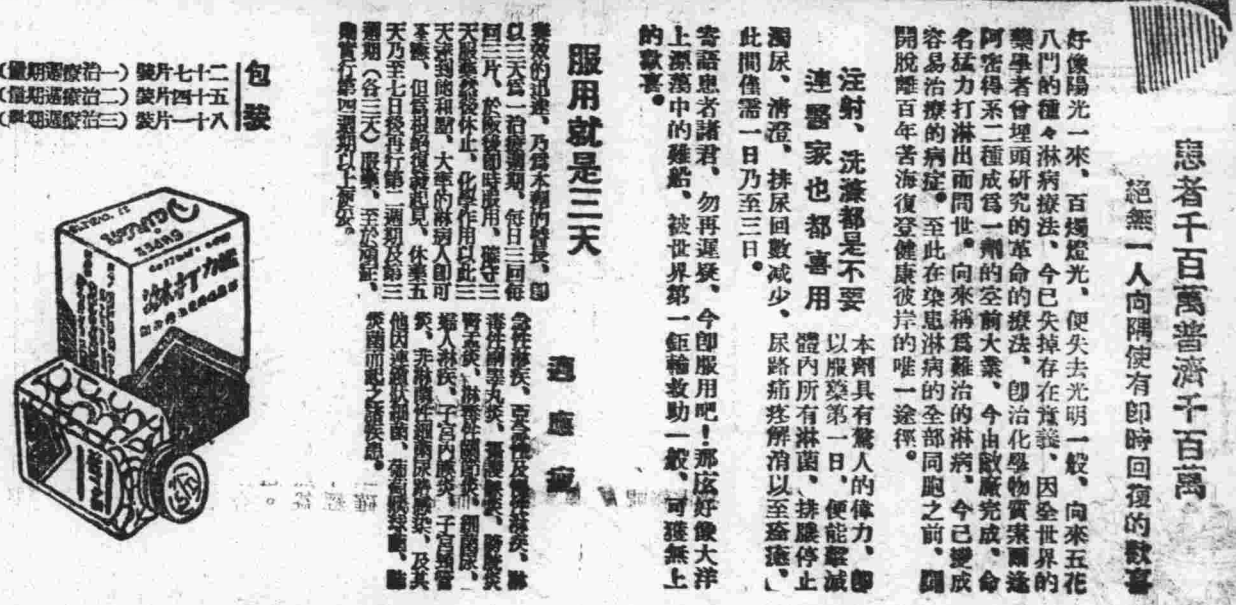 患者千百萬普濟千百萬
絕無一人向隅使有卽時回復的歡喜
好像陽光一來、百燭燈光、便失去光明一般、向來五花
八門的種々淋病療法、今已失掉存在意義、因全世界的
藥學者曾埋頭研究的革命的療法、卽治化學物質柰爾逢
阿密得系二種成爲一劑的空前大業、今由敝廠完成、命
名猛力打淋出而問世。向來稱爲難治的淋病、今已變成
容易治療的病症。至此在染患淋病的全部同胞之前、闢
開脫離百年苦海復登健康彼岸的唯一途徑。
注射、洗滌都是不要
連醫家也都喜用
本劑具有驚人的偉力、卽
以服藥第一日、便能殲滅
體內所有淋菌、排膿停止
尿路痛疼解消以至痊癒、
濁尿、清澄、排尿回數減少、
此間僅需一日乃至三日。
寄語患者諸君、勿再遲疑、今卽服用吧！那麽好像大洋
上漂蕩中的難船、被世界第一鉅輪救助一般、可獲無上
的歡喜。
服用就是三天
藥效的迅速、乃爲本劑的特長、卽
以三天爲一治療週期、每日三回每
回三片、於飯後卽時服用、確守三
天服藥然後休止、化學作用以此三
天達到飽和點、大率的淋病人卽可
本癒、但爲根絕復發起見、休藥五
天乃至七日後再行第二週期及第三
週期（各三天）服藥、至於頑症、
應實行第四週期以上更妥。
適應症
急性淋疾、亞急性及慢性淋疾、淋
毒性副睪丸炎、攝護腺炎、膀胱炎
腎盂炎、淋毒性關節炎、細菌尿、
婦人淋疾、子宮內膜炎、子宮頸管
炎、非淋菌性細菌尿路感染、及其
他因連鎖狀細菌、葡萄狀球菌、肺
炎菌而起之諸疾患。
包裝
二十七片裝（一治療週期量）
五十四片裝（二治療週期量）
八十一片裝（三治療週期量）
猛力打淋